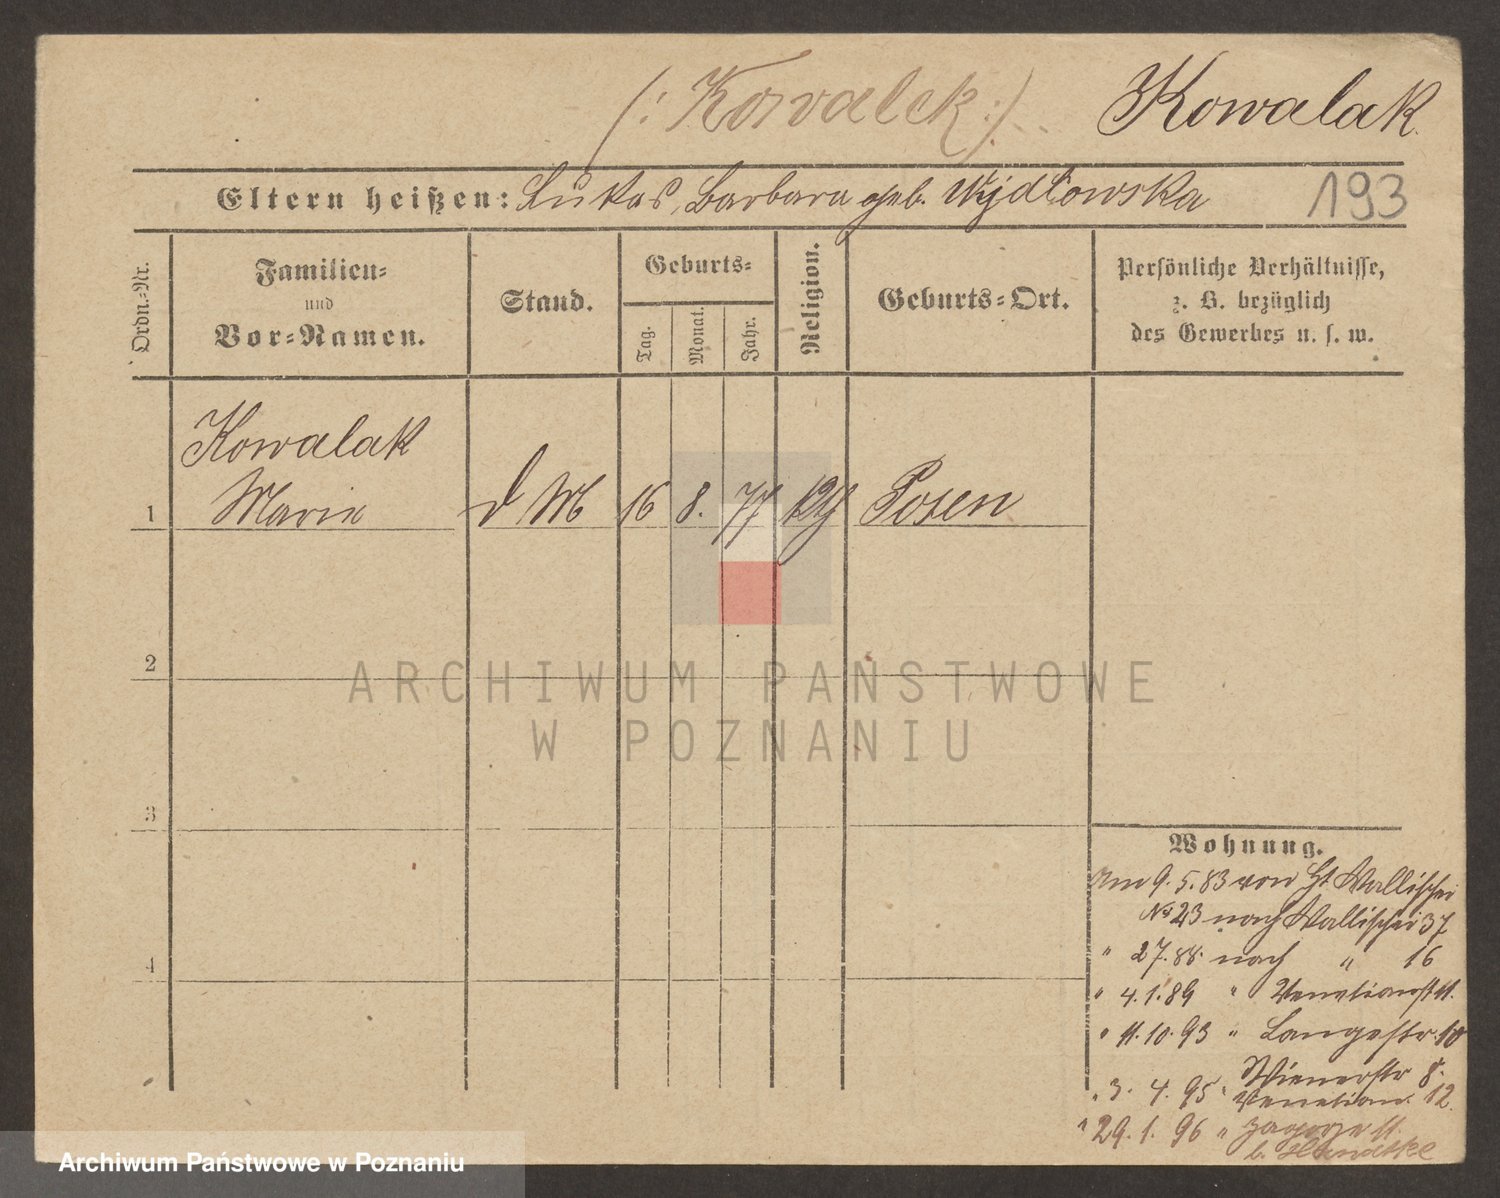 (: Kowalek :) Kowalak
Eltern heißen: Lukas, Barbara geb. Wydlowska 193
Ordn.-Nr.
Familien-
und
Vor-Namen.
Stand.
Geburts-
Tag.
Monat.
Jahr.
Religion.
Geburts-Ort.
Persönliche Verhältnisse,
z. B. bezüglich
des Gewerbes u. s. w.
Kowalak
1 Marie d M 16 8. 77 Posen
2
3
4
ARCHIWUM PAŃSTWOWE
W POZNANIU
Wohnung.
Am 9.5.83 von Wallischei
No 23 nach Wallischei 37
" 27.88. nach " 16
" 4.1.89 " Venetianerstr 11.
" 11.10.93 " Langestr. 10
Wienerstr 8.
" 3. 4. 95 " Venetian. 12
" 29. 1. 96 " Zagorze 11.
b.
Archiwum Państwowe w Poznaniu